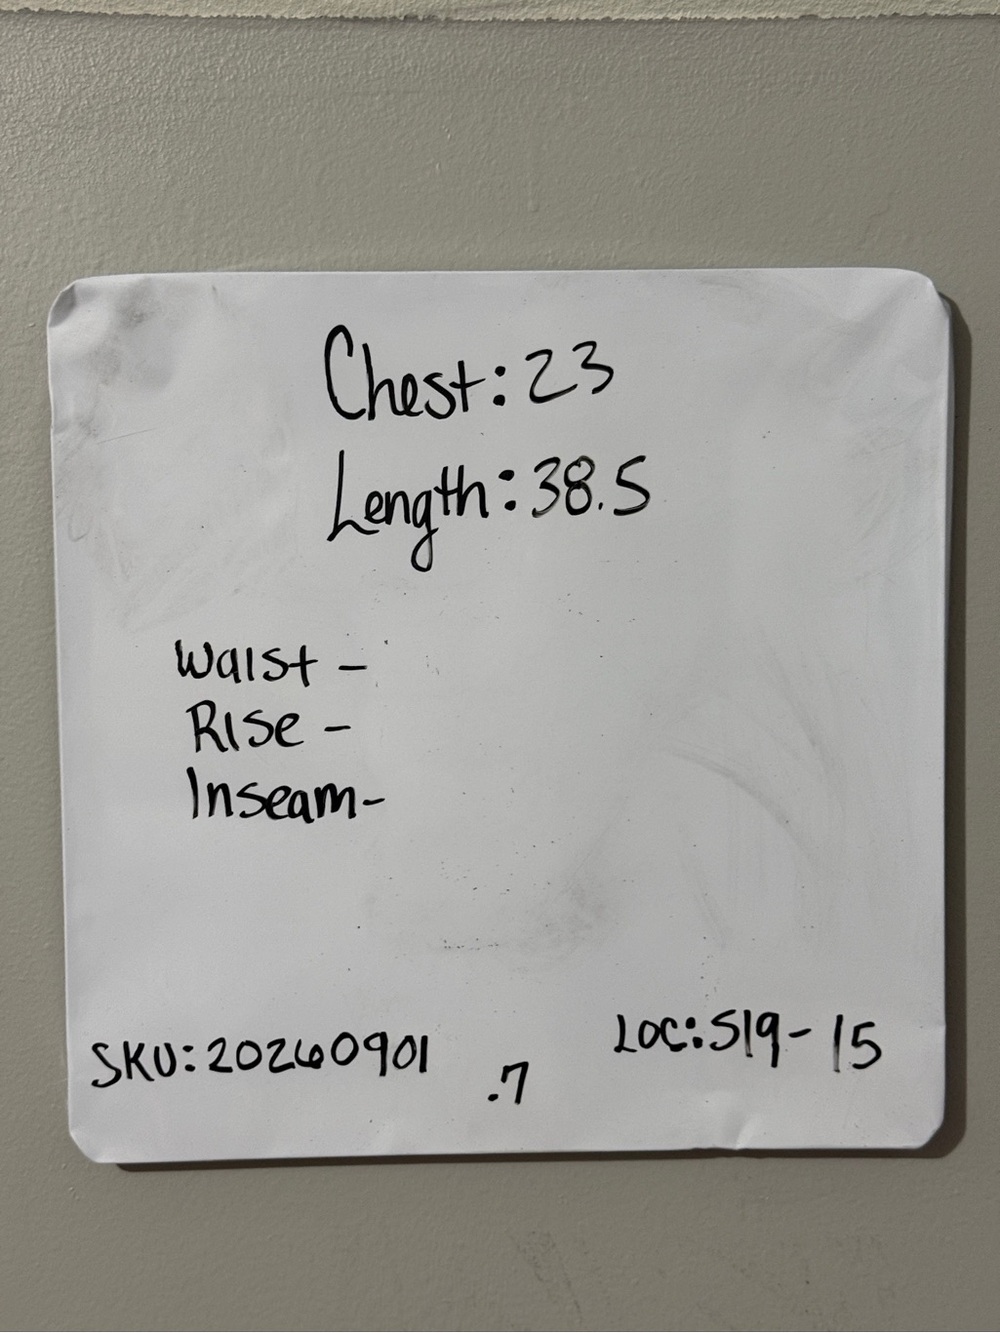 Chest: 23
Length: 38.5
Waist -
Rise -
Inseam-
SKU: 20260901
.7
Loc: S19-15